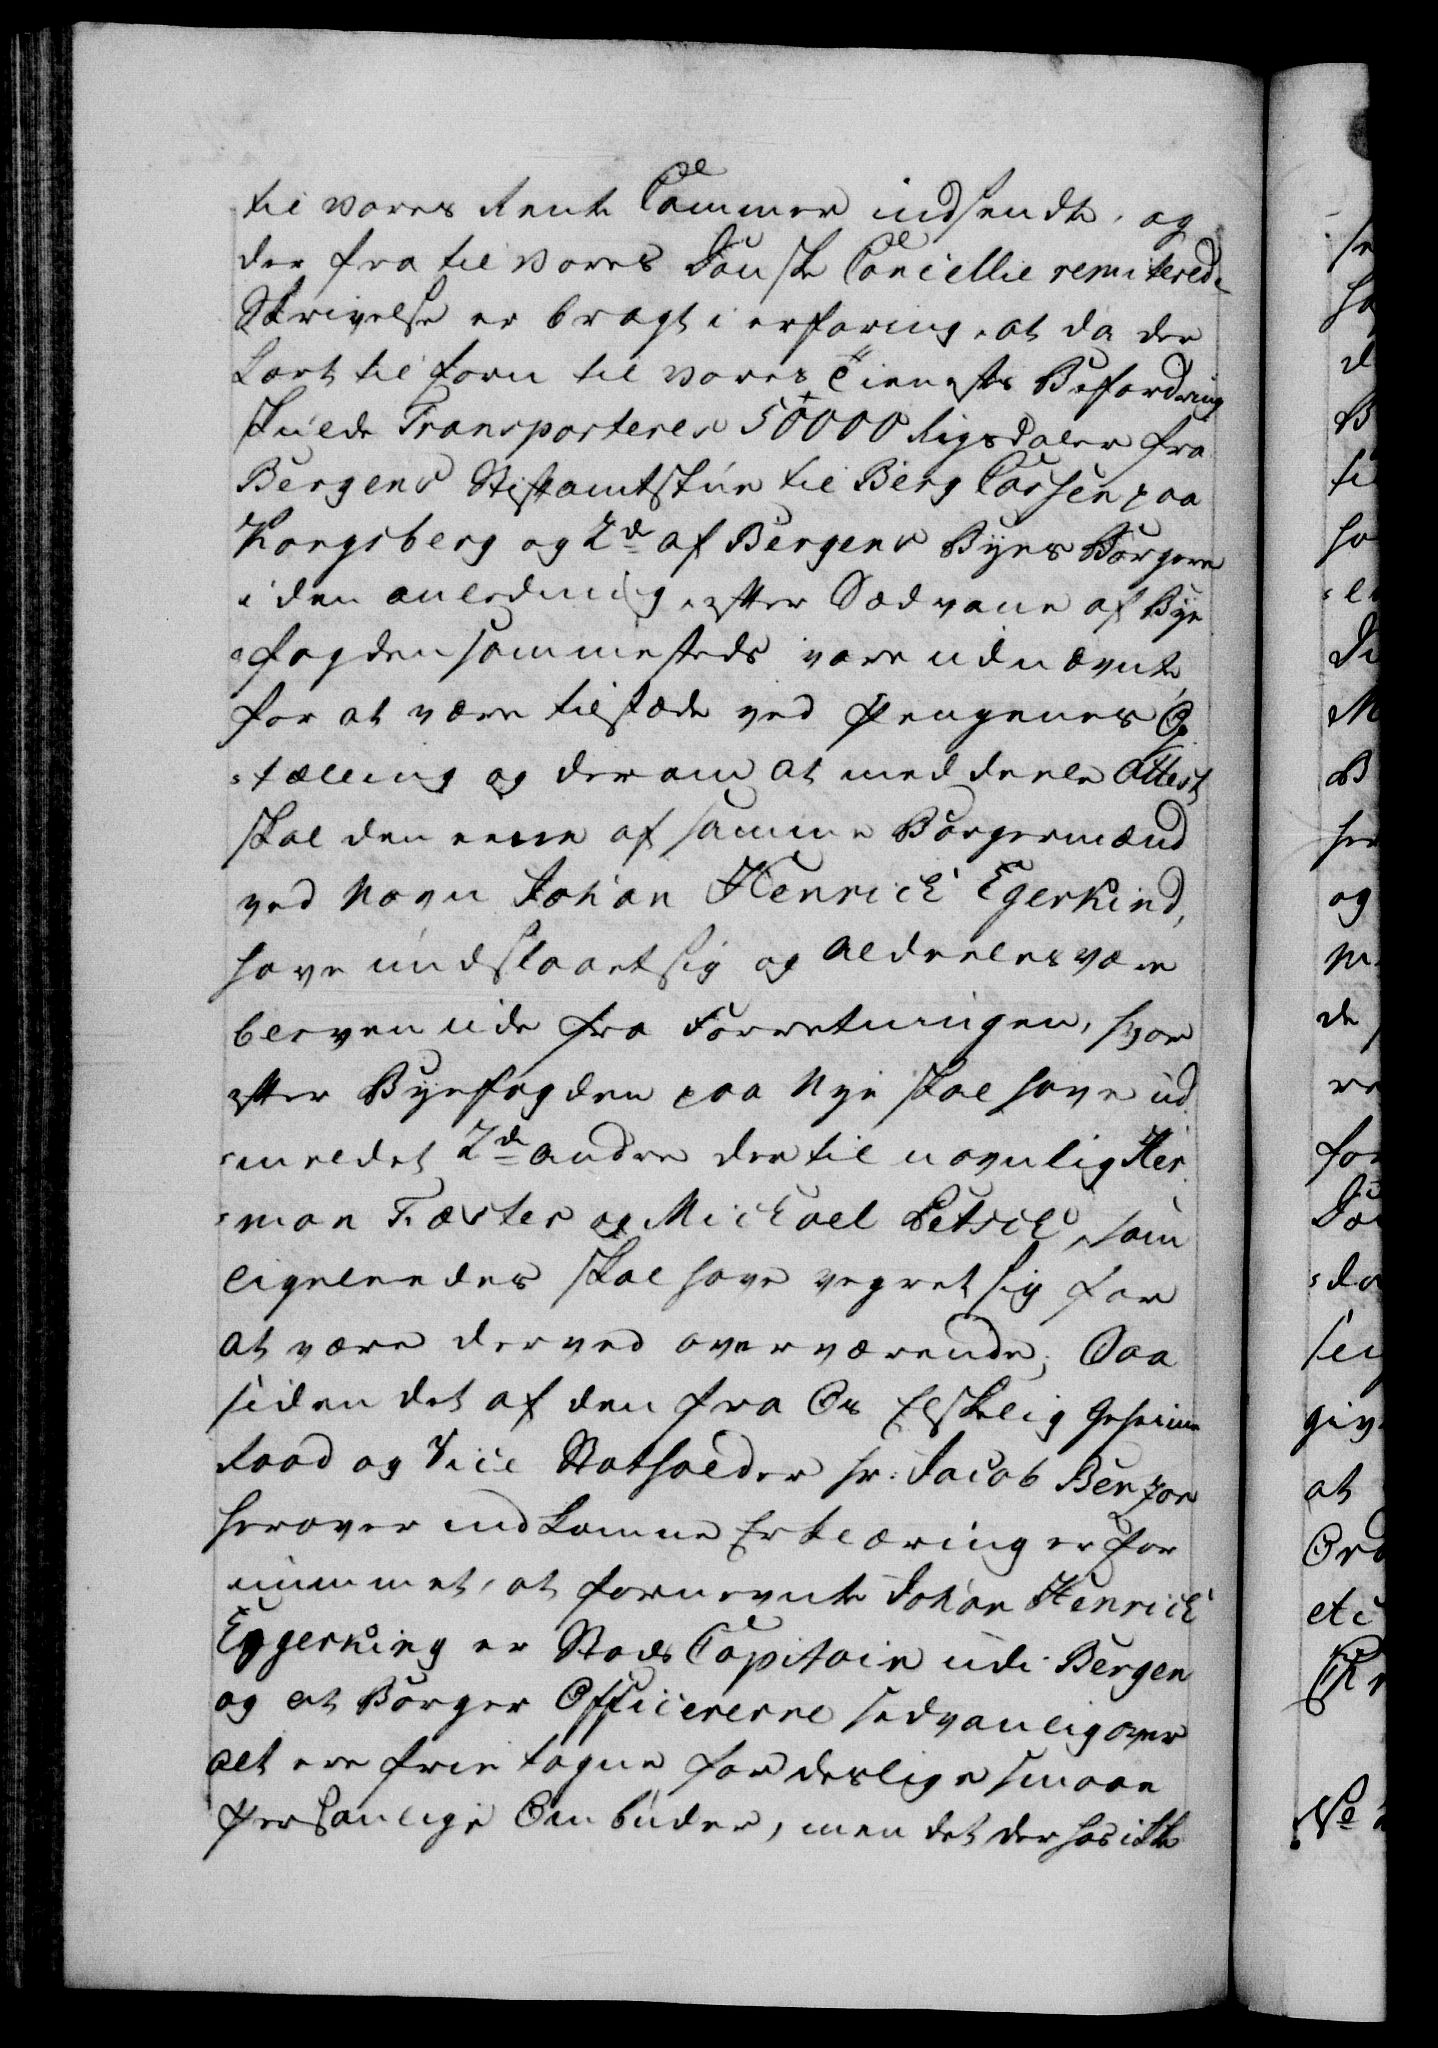 til vores Rente Cammer indsendte, og
der fra til vores Danske Cancellie remiterede
Skrivelse er bragt i erfaring, at da der
kort tilforn til vores Tienestes Befordring
skulde Transporteres 50000 Rigsdaler fra
Bergens Stiftamtstue til Berg Cassen paa
Kongsberg og 2de af Bergens Byes Borgere
i den anledning, efter Sædvane af Bye
-fogden sammesteds vare udnævnte
for at være tilstæde ved Pengenes Op
-tælling og derom at meddeele Attest,
skal den eene af samme Borgermænd
ved Navn Johan Henrich Egerking,
have undslaaet sig og aldeeles være
bleven ude fra Forretningen, hvor
efter Byefogden paa Nye skal have ud
-meldet 2de andre der til navnlig Her
-man Fæster og Michael Letrich, som
ligeleedes skal have vegret sig for
at være derved overværende; Saa
siden det af den fra Os Elskelig Geheime
Raad og Vice Statholder Hr: Jacob Benzon
herover indkomne Erklæring er for
nummet, at fornævnte Johan Henrich
Eggerking er Stads Capitain udi Bergen
og at Borger Officererne sædvanlig over
alt ere frie tagne for deslige smaae
Personlige Ombuder, men det derhos ikke